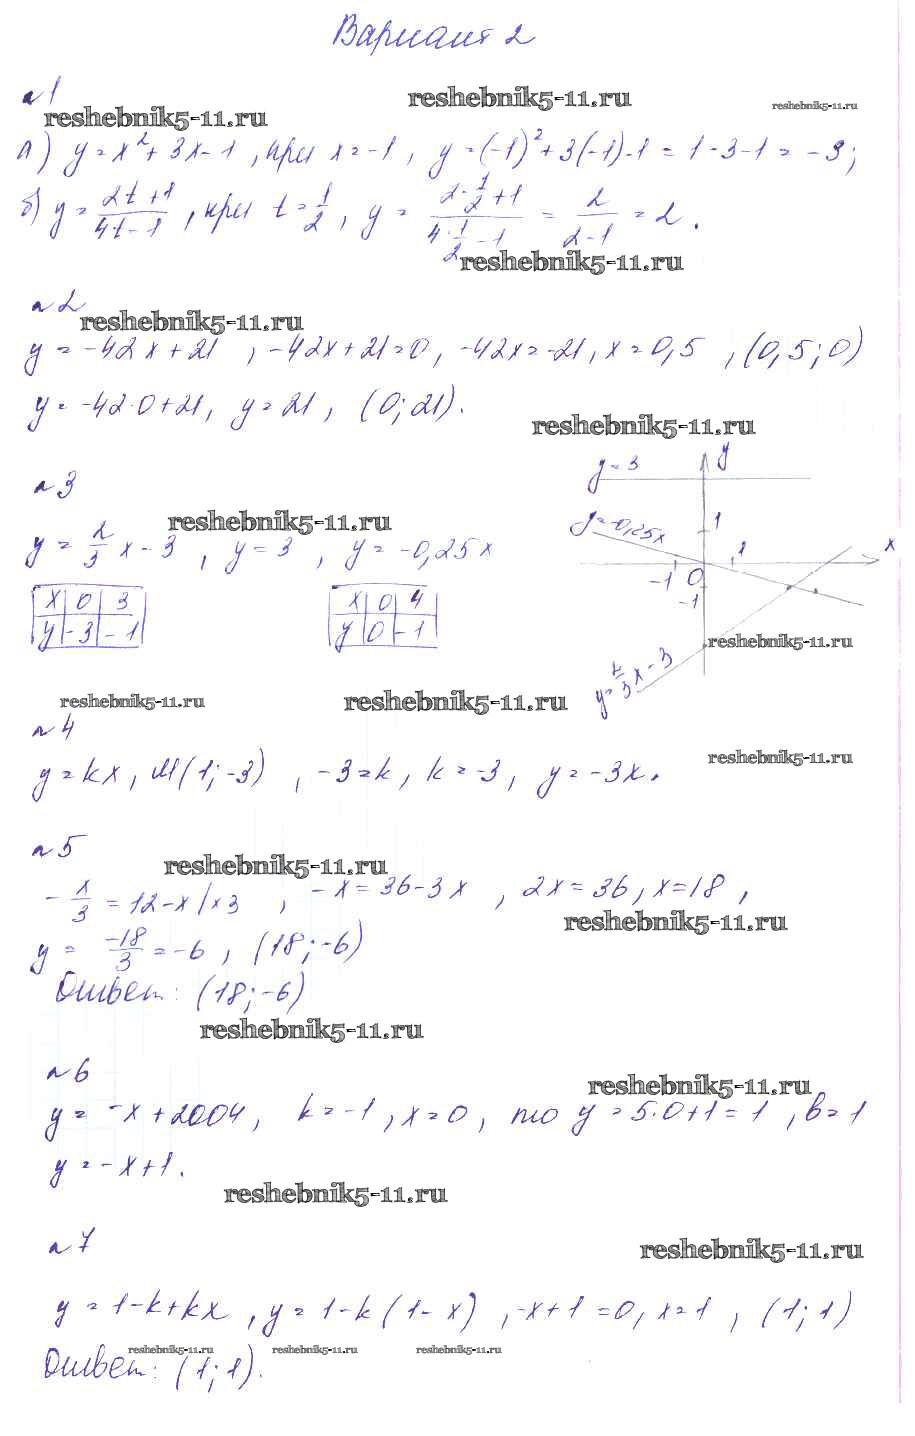 Вариант 2
№1
reshebnik5-11.ru
reshebnik5-11.ru
reshebnik5-11.ru
А) y = x² + 3x - 1, при x = -1, y = (-1)² + 3(-1) - 1 = 1 - 3 - 1 = -3;
б) y = (2t + 1)/(4t - 1), при t = 1/2, y = (2·1/2 + 1)/(4·1/2 - 1) = 2/(2-1) = 2.
reshebnik5-11.ru
№2
reshebnik5-11.ru
y = -42x + 21, -42x + 21 = 0, -42x = -21, x = 0,5, (0,5; 0)
y = -42·0 + 21, y = 21, (0; 21).
reshebnik5-11.ru
№3
reshebnik5-11.ru
y = 2/3 x - 3, y = 3, y = -0,25x
x 0 3
y -3 -1
x 0 4
y 0 -1
y
y = 3
y = -0,25x
1
1
x
-1 0
-1
reshebnik5-11.ru
y = 2/3 x - 3
reshebnik5-11.ru
reshebnik5-11.ru
№4
reshebnik5-11.ru
y = kx, M(1; -3), -3 = k, k = -3, y = -3x.
№5
reshebnik5-11.ru
-x/3 = 12 - x |×3, -x = 36 - 3x, 2x = 36, x = 18,
reshebnik5-11.ru
y = -18/3 = -6, (18; -6)
Ответ: (18; -6)
reshebnik5-11.ru
№6
reshebnik5-11.ru
y = -x + 2004, k = -1, x = 0, то y = 5·0 + 1 = 1, b = 1
y = -x + 1.
reshebnik5-11.ru
№7
reshebnik5-11.ru
y = 1 - k + kx, y = 1 - k(1 - x), -x + 1 = 0, x = 1, (1; 1)
reshebnik5-11.ru
reshebnik5-11.ru
reshebnik5-11.ru
Ответ: (1; 1).